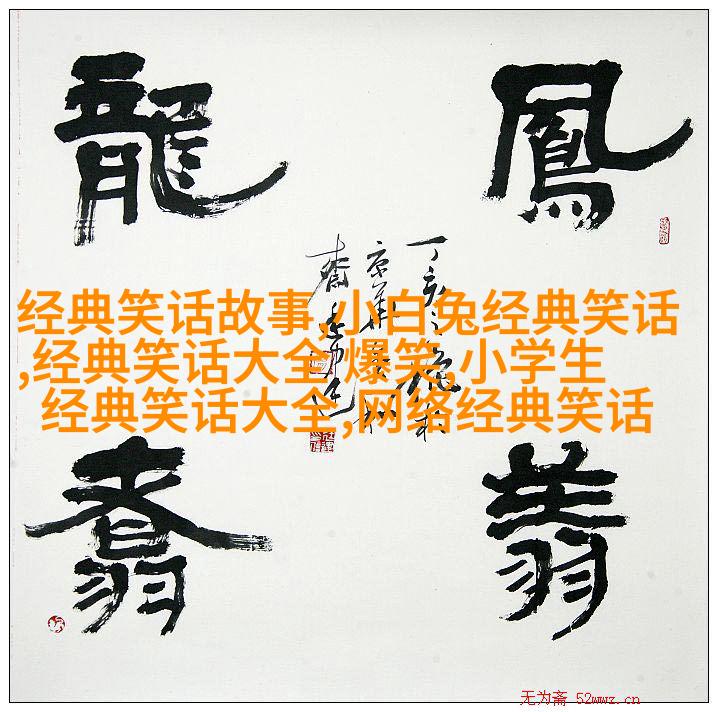 鳳翔
龍翥
丁亥之
京華
经典笑话故事,小白兔经典笑话
,经典笑话大全 爆笑,小学生
经典笑话大全,网络经典笑话
无为斋 52wwz.cn